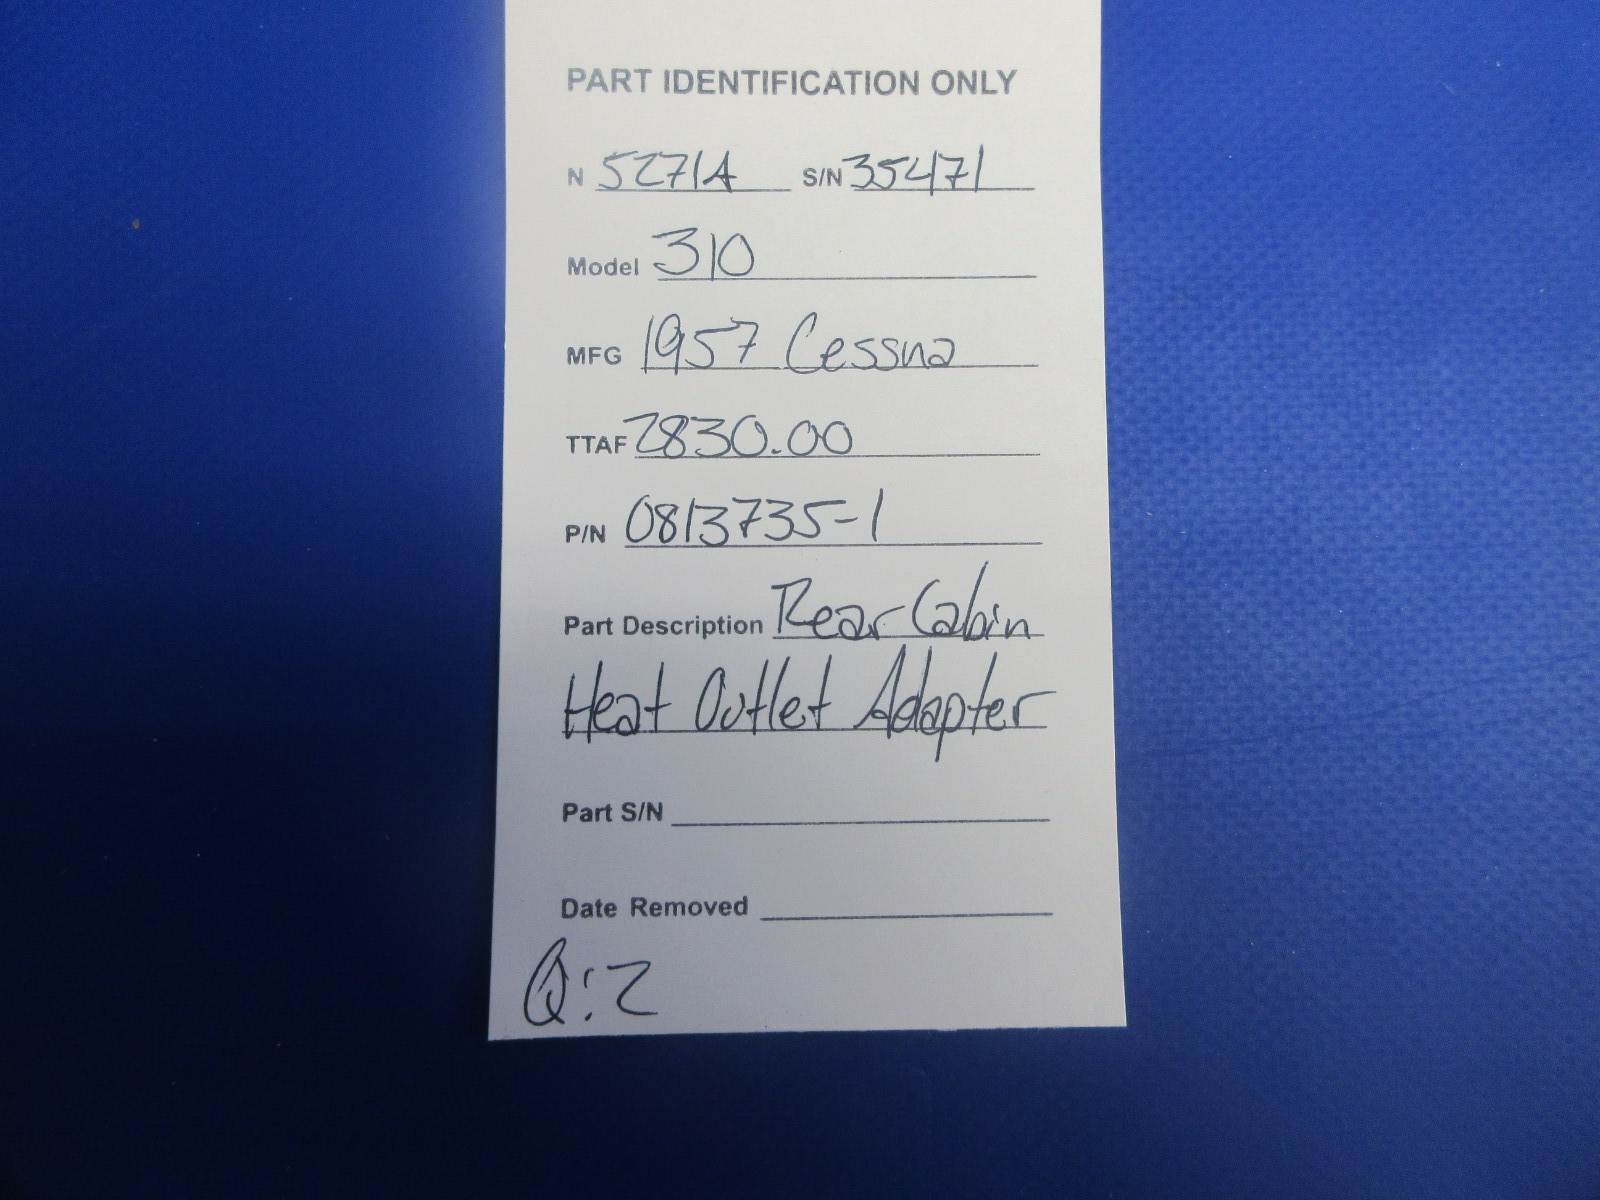 PART IDENTIFICATION ONLY
N 5271A S/N 35471
Model 310
MFG 1957 Cessna
TTAF 2830.00
P/N 0813735-1
Part Description Rear Cabin
Heat Outlet Adapter
Part S/N
Date Removed
Q:2